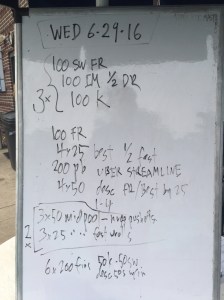 WED 6-29-16
100 SW FR
100 IM 1/2 DR
3x { 100 K
100 FR
4x25 best 1/2 fast
200 pb UBER STREAMLINE
4x50 desc FR/Best by 25
1-4
3x50 mid pool - pushoffs
2x 3x25 " " fast
6x200 fins 50k-50sw
desc 50s